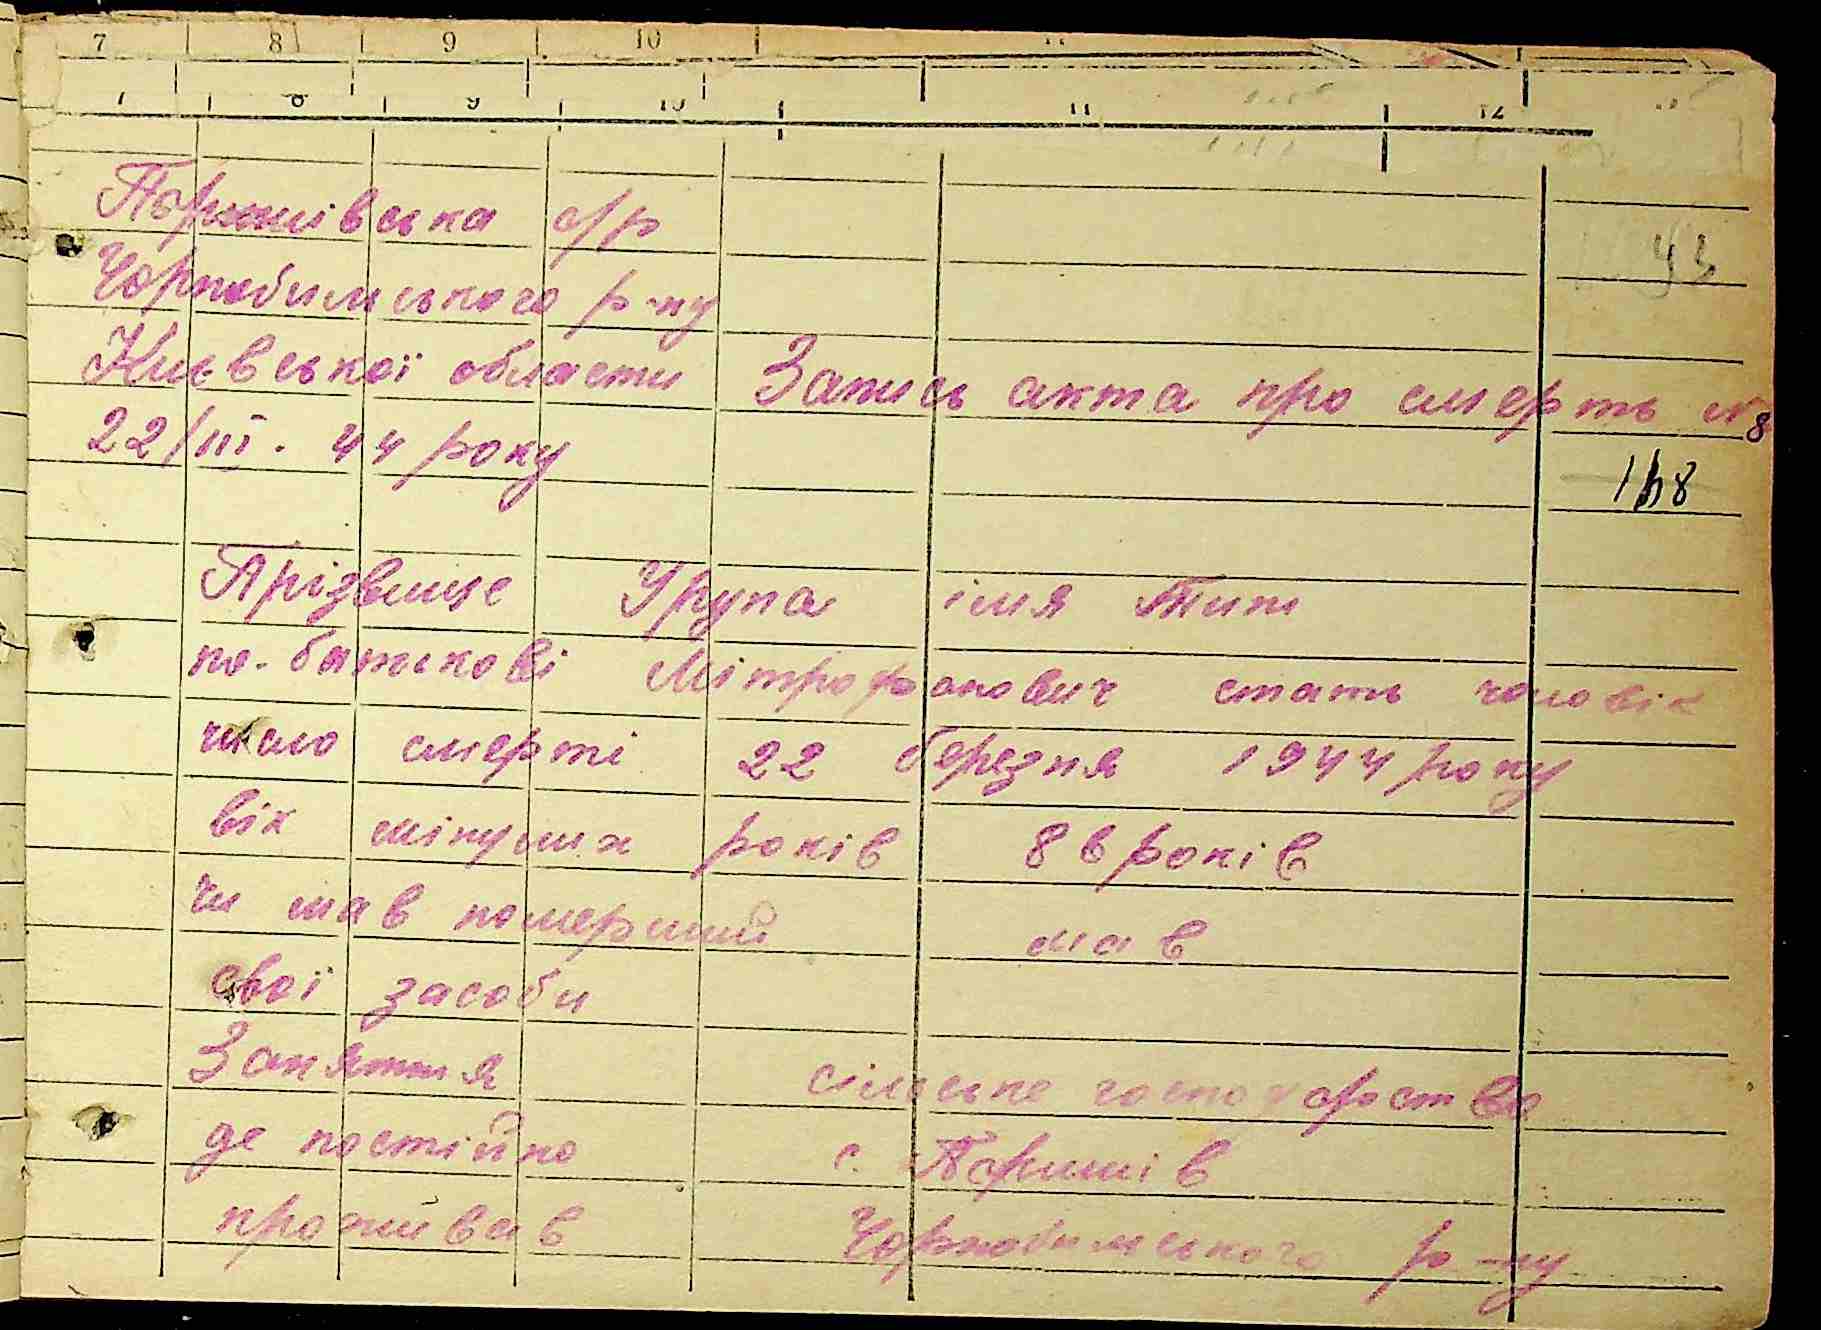 7 8 9 10 11
7 8 9 10 11 12
Паришівська с/р
43
Чорнобильського р-ну
Київської области Запись акта про смерть №8
22/III. 44 року
148
Прізвище Урупа імя Тит
по-батькові Мітрофанович стать чоловік
число смерті 22 березня 1944 року
вік мінулих років 86 років
чи мав померший мав
свої засоби
Заняття сільське господарство
де постійно с. Паришів
проживав Чорнобильського р-ну